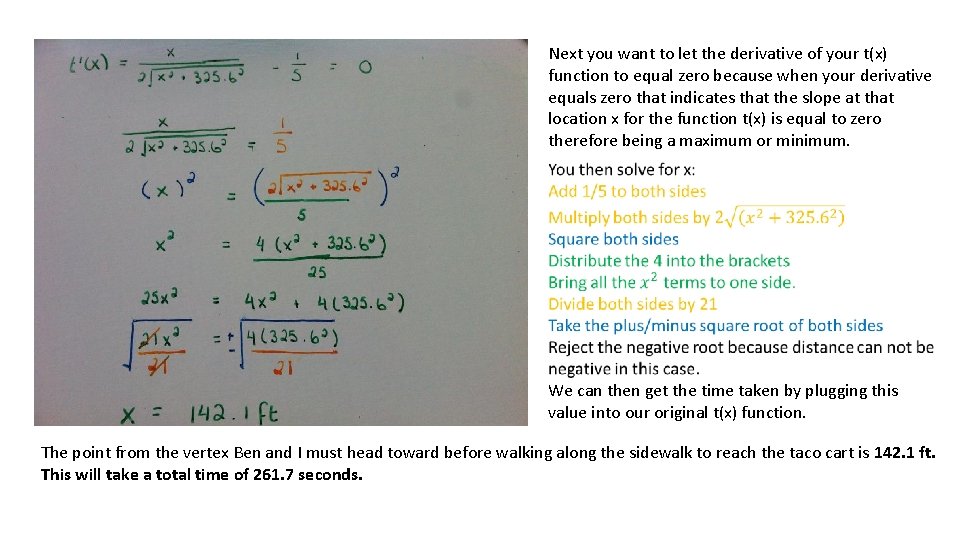 t'(x) = x / 2√x² + 325.6² - 1/5 = 0
x / 2√x² + 325.6² = 1/5
(x)² = (2√x² + 325.6² / 5)²
x² = 4(x² + 325.6²) / 25
25x² = 4x² + 4(325.6²)
√21x² / 21 = ± √4(325.6²) / 21
x = 142.1 ft
Next you want to let the derivative of your t(x)
function to equal zero because when your derivative
equals zero that indicates that the slope at that
location x for the function t(x) is equal to zero
therefore being a maximum or minimum.
You then solve for x:
Add 1/5 to both sides
Multiply both sides by 2√(x² + 325.6²)
Square both sides
Distribute the 4 into the brackets
Bring all the x² terms to one side.
Divide both sides by 21
Take the plus/minus square root of both sides
Reject the negative root because distance can not be
negative in this case.
We can then get the time taken by plugging this
value into our original t(x) function.
The point from the vertex Ben and I must head toward before walking along the sidewalk to reach the taco cart is 142.1 ft.
This will take a total time of 261.7 seconds.